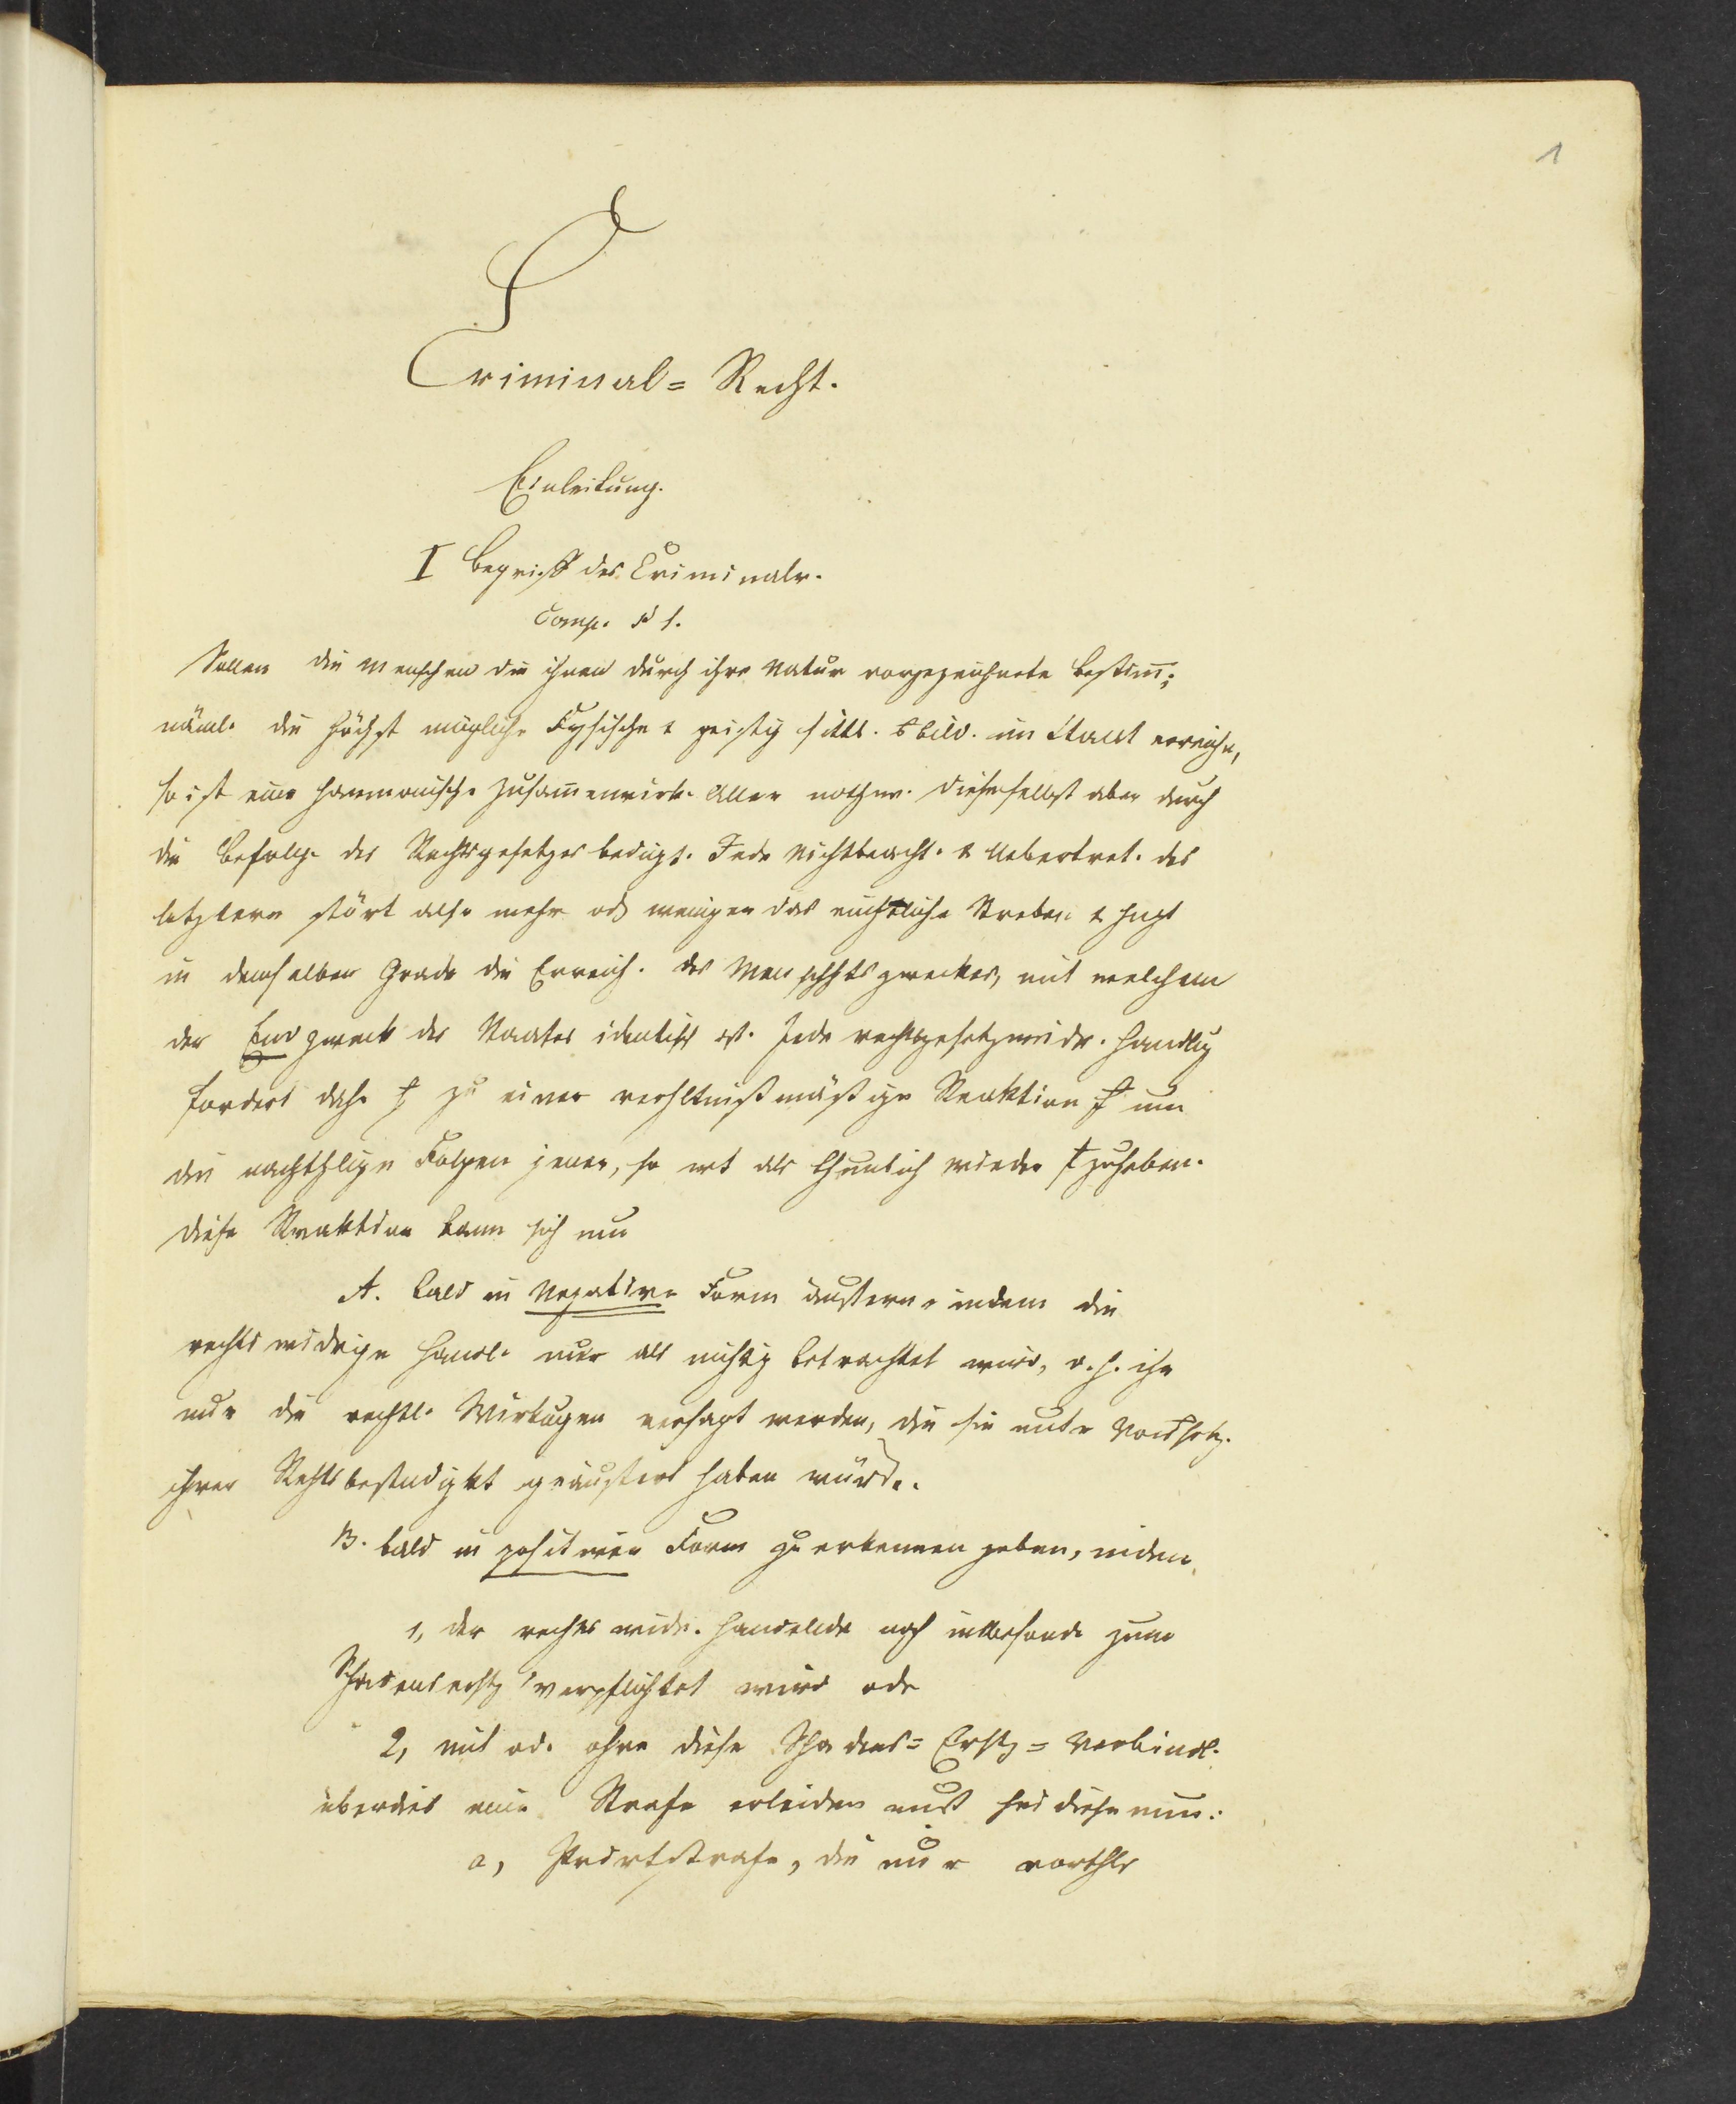 1
Criminal= Recht.
Einleitung.
I Begriff des Criminalr.
Comp. § 1.
Sollen die Menschen die ihnen durch ihre Natur vorgezeichnete Bestim̅;
näml. die höchst mögliche Fysische & geistig sittl. bild. im Staat erreiche,
so ist eine harmonische Zusam̅enwirk. Aller nothw. diese selbst aber durch
die Befolg. des Rechtsgesetzes bedingt. Jede Nichtbeacht. & Uebertret. des
letztern stört also mehr od weniger das rechtliche Streben &
in demselben Grade die Erreich. des Menschhtszweckes, mit welchem
der Endzweck des Staates identisch ist. Jede rechtsgesetzwidr. Handlg
fordert dahe zu einer verhltnißmäßige Reaktion um
die nachthlige Folgen jener, so wt als thunlich wieder zuheben.
diese Reaktion kann sich nun
A. bald in Negative Form äussern, indem die
rechtswidrige Handl. nur als nichtig betrachtet wird, d. h. ihr
nur die rechtl. Wirkugen versagt werden, die sie unte Voraussetz.
ihrer Rechtsbestndigkt geäussert haben würde.
B. bald in positiver Form zu erkennen geben, indem
1, der rechtswidr. Handelnde noch insbesonde zum
Schadensersatz verpflichtet wird ode
2, mit od. ohne diese Schadens= Ersatz= Verbindl.
überdies eine Strafe erleiden muß sei diese nun:
a, Privtstrafe, die nur vorthls